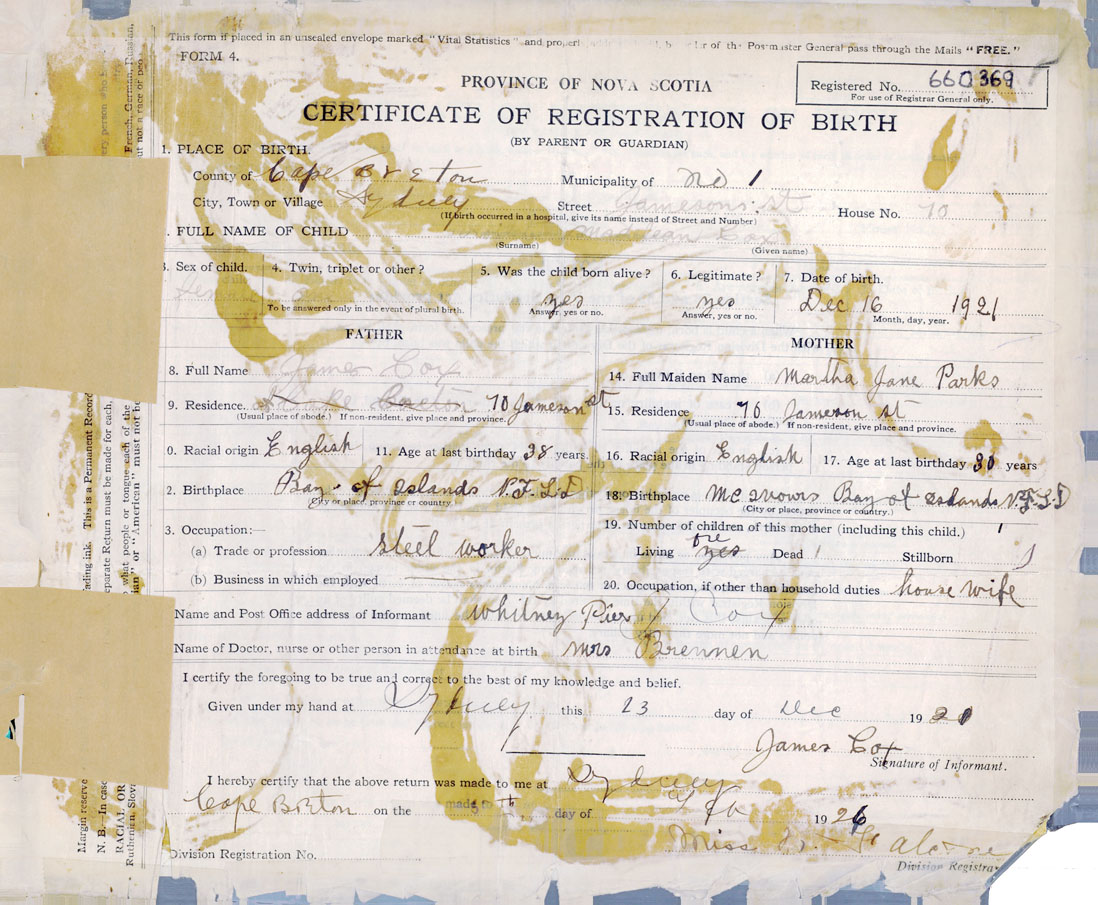 This form if placed in an unsealed envelope marked "Vital Statistics" and of the Postmaster General pass through the Mails "FREE."
FORM 4.
PROVINCE OF NOVA SCOTIA
Registered No. 660369
For use of Registrar General only.
CERTIFICATE OF REGISTRATION OF BIRTH
(BY PARENT OR GUARDIAN)
1. PLACE OF BIRTH.
County of Cape Breton Municipality of No 1
City, Town or Village Sydney Street Jamesons st House No. 70
(If birth occurred in a hospital, give its name instead of Street and Number)
. FULL NAME OF CHILD Cox
(Surname) (Given name)
3. Sex of child. 4. Twin, triplet or other? 5. Was the child born alive? 6. Legitimate? 7. Date of birth.
yes yes Dec 16 1921
To be answered only in the event of plural birth. Answer, yes or no. Answer, yes or no. Month, day, year.
FATHER MOTHER
8. Full Name James Cox
14. Full Maiden Name Martha Jane Parks
9. Residence. Cape Breton 70 Jameson st
(Usual place of abode.) If non-resident, give place and province.
15. Residence 76 Jameson st
(Usual place of abode.) If non-resident, give place and province.
0. Racial origin English 11. Age at last birthday 38 years.
16. Racial origin English 17. Age at last birthday 30 years
2. Birthplace Bay of Islands N.F.L.D
(City or place, province or country.)
18. Birthplace Bay of Islands N.F.L.D
(City or place, province or country.)
3. Occupation:—
(a) Trade or profession steel worker
(b) Business in which employed
19. Number of children of this mother (including this child.) 1
Living yes Dead Stillborn
20. Occupation, if other than household duties house wife
Name and Post Office address of Informant Whitney Pier Cox
Name of Doctor, nurse or other person in attendance at birth Mrs Brennen
I certify the foregoing to be true and correct to the best of my knowledge and belief.
Given under my hand at Sydney this 23 day of Dec 1921
James Cox
Signature of Informant.
I hereby certify that the above return was made to me at Sydney
Cape Breton on the day of 1926
Miss
Division Registration No.
Division Registrar
Margin reserve
N. B.—In case
RACIAL OR
Ruthenian, Slova
ading ink. This is a Permanent Record
eparate Return must be made for each,
o what people or tongue each of the
ian" or "American" must not be
French, German, Russian,
but not a race or peo